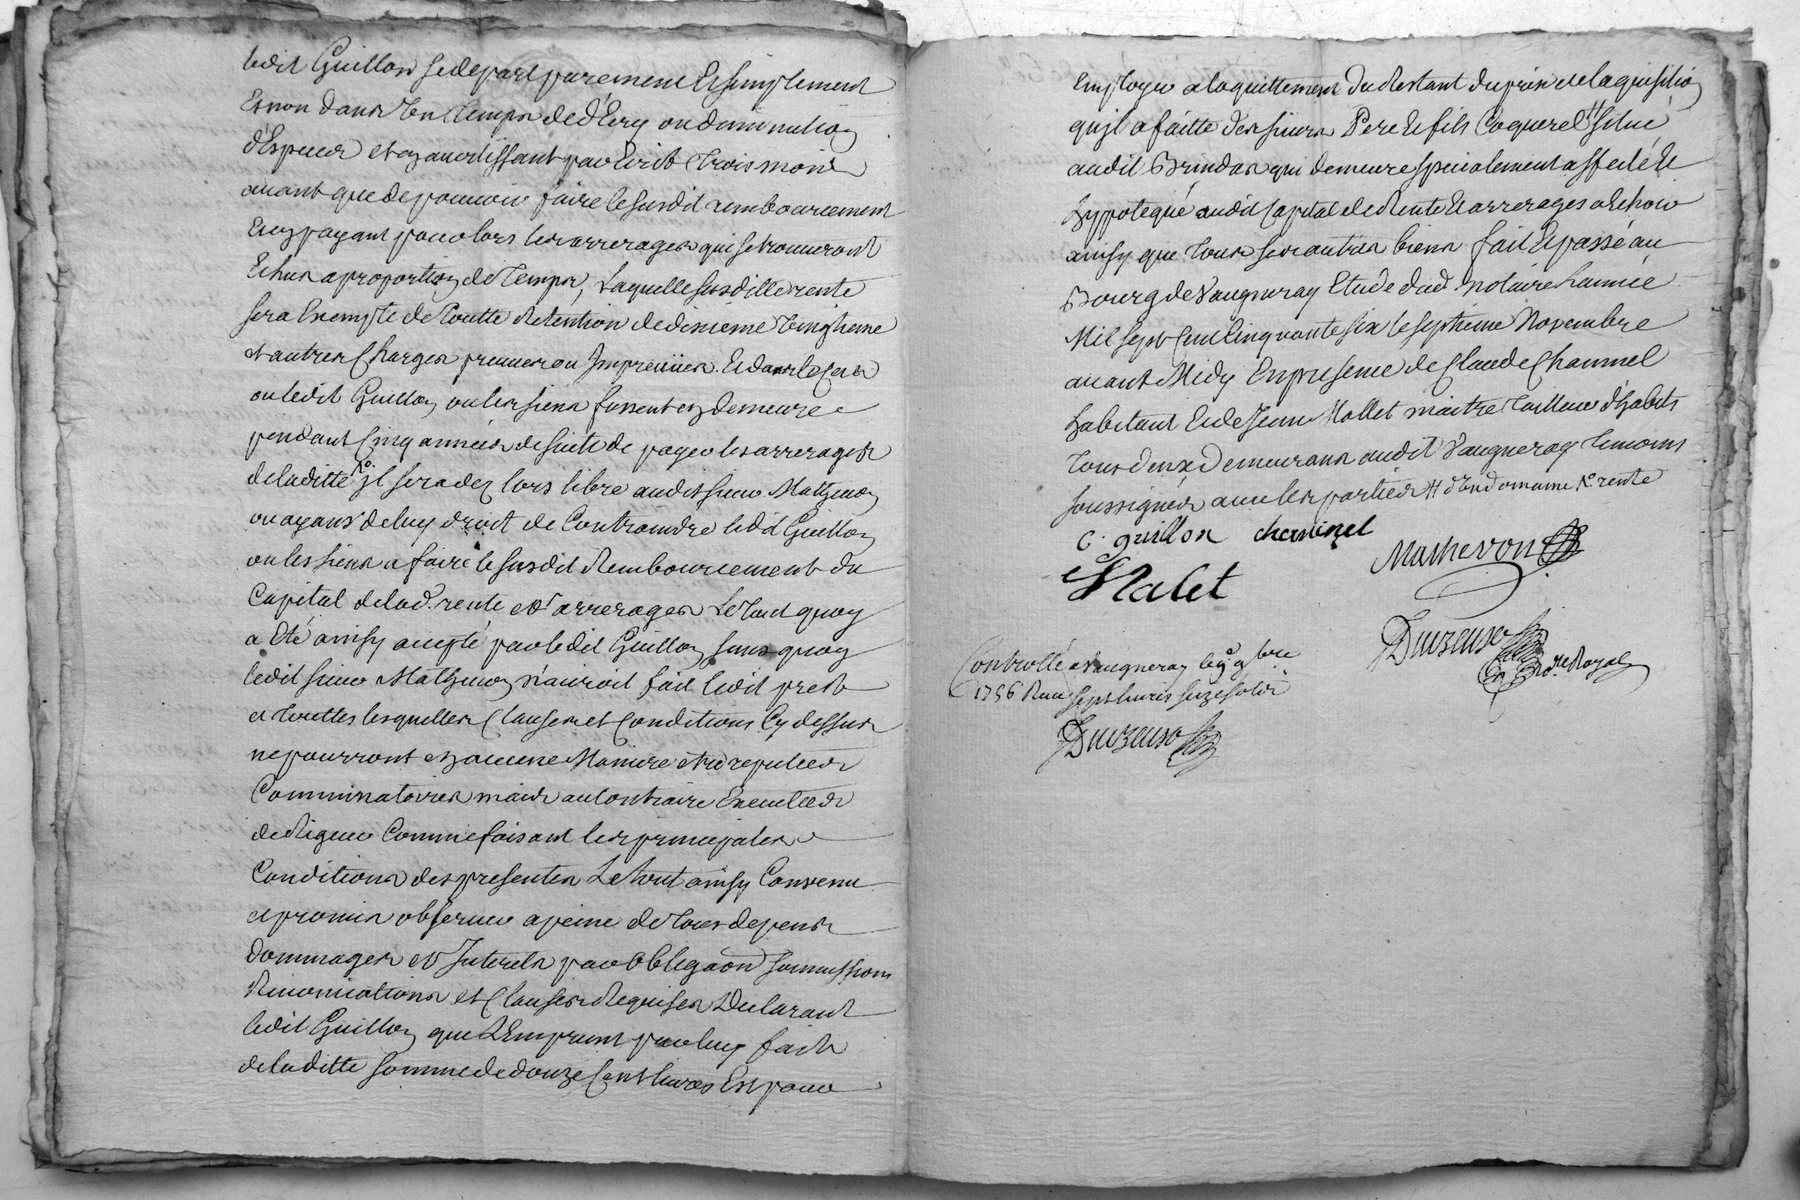 ledit Guillon se depart purement Et simplement
Et non dans Un Temps de d'Ecry ou diminution
d'Especes et en avertissant par Ecrit trois mois
avant que de pouvoir faire le susdit rembourcement
Et en payant pour lors les arrerages qui se trouveront
Echus a proportion de Temps, Laquelle susditte rente
sera Exempte de Toutte Retention de dixieme Vingtieme
et autres Charges preveues ou Impreveües. Et dans le Cas
ou ledit Guillon ou les siens fussent en demeure
pendant Cinq années de suite de payer les arrerages
de laditte re. jl sera dez lors libre audit sieur Mathevon
ou ayans de luy droit de Contraindre led. Guillon
ou les siens a faire le susdit Rembourcement du
Capital de lad. rente et arrerages Le Tout quoy
a Eté ainsy accepté par ledit Guillon sans quoy
ledit sieur Mathevon n'auroit fait ledit prest
et Touttes lesquelles Clauses et Conditions Cy dessus
ne pourront en aucune Maniere etre reputées
Comminatoires mais au Contraire Executées
de Rigueur Comme faisant les principales
Conditions des presentes Le tout ainsy Convenu
et promis observer a peine de tous depens
Dommages et Interets par Obligaon soumissions
Renonciations et Clauses Requises Declarant
ledit Guillon que L'Emprunt par luy fait
de laditte somme de douze Cent livres Est pour
Employer a laquittement du Restant du prix de laquisition
qu'jl a faitte des sieurs Pere Et fils Coquerel # situé
audit Brindas qui demeure specialement affecté Et
hypotequé audit Capital de Rente Et arrerages a Echoir
ainsy que Tous ses autres biens fait Et passé au
Bourg de Vaugneray Etude dud. notaire L'année
Mil sept Cent Cinquante six le septieme Novembre
avant Midy En presence de Claude Charvinel
habitant Et de Jean Mallet maitre Tailleur d'habits
Tous deux Demeurans audit Vaugneray Temoins
soussignés avec les parties # d'Un domaine re. rente
C. guillon charvinel
Mathevon
Malet
Controllé a Vaugneray le 9 9bre
1756 Reçu sept livres seize sols
Nore. Royal